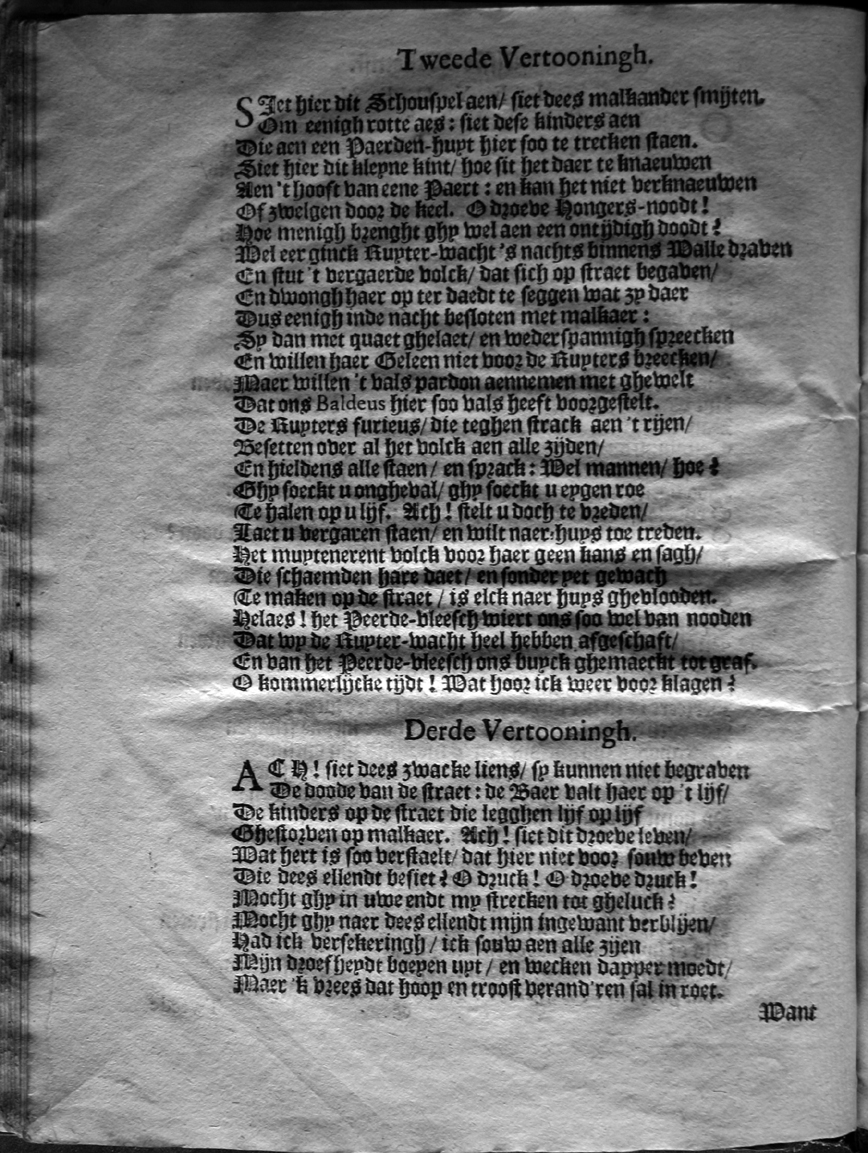 Tweede Vertooningh.
SIet hier dit Schouspel aen/ siet dees malkander smijten.
Om eenigh rotte aes : siet dese kinders aen
Die aen een Paerden-huyt hier soo te trecken staen.
Siet hier dit kleyne kint/ hoe sit het daer te knaeuwen
Aen 't hooft van eene Paert : en kan het niet verknaeuwen
Of zwelgen door de keel. O droeve Hongers-noodt !
Hoe menigh brenght ghy wel aen een ontijdigh doodt ?
Wel eer ginck Ruyter-wacht 's nachts binnens Walle draven
En stut 't vergaerde volck/ dat sich op straet begaven/
En dwongh haer op ter daedt te seggen wat zy daer
Dus eenigh inde nacht besloten met malkaer :
Sy dan met quaet ghelaet/ en wederspannigh spreecken
En willen haer Geleen niet voor de Ruyters breecken/
Maer willen 't vals pardon aennemen met ghewelt
Dat ons Baldeus hier soo vals heeft voorgestelt.
De Ruyters furieus/ die teghen strack aen 't rijen/
Besetten over al het volck aen alle zijden/
En hieldens alle staen/ en sprack : Wel mannen/ hoe ?
Ghy soeckt u ongheval/ ghy soeckt u eygen roe
Te halen op u lijf. Ach ! stelt u doch te vreden/
Laet u vergaren staen/ en wilt naer-huys toe treden.
Het muytenerent volck voor haer geen kans en sagh/
Die schaemden hare daet/ en sonder yet gewach
Te maken op de straet/ is elck naer huys ghevlooden.
Helaes ! het Peerde-vleesch wiert ons soo wel van nooden
Dat wy de Ruyter-wacht heel hebben afgeschaft/
En van het Peerde-vleesch ons buyck ghemaeckt tot graf.
O kommerlijcke tijdt ! Wat hoor ick weer voor klagen ?
Derde Vertooningh.
ACH ! siet dees zwacke liens/ sy kunnen niet begraven
De doode van de straet : de Baer valt haer op 't lijf/
De kinders op de straet die legghen lijf op lijf
Ghestorven op malkaer. Ach ! siet dit droeve leven/
Wat hert is soo verstaelt/ dat hier niet voor souw beven
Die dees ellendt besiet ? O druck ! O droeve druck !
Mocht ghy in uwe endt my strecken tot gheluck ?
Mocht ghy naer dees ellendt mijn ingewant verblijen/
Had ick versekeringh/ ick souw aen alle zijen
Mijn droefheydt boeyen uyt/ en wecken dapper moedt/
Maer 'k vrees dat hoop en troost verand'ren sal in roet.
Want